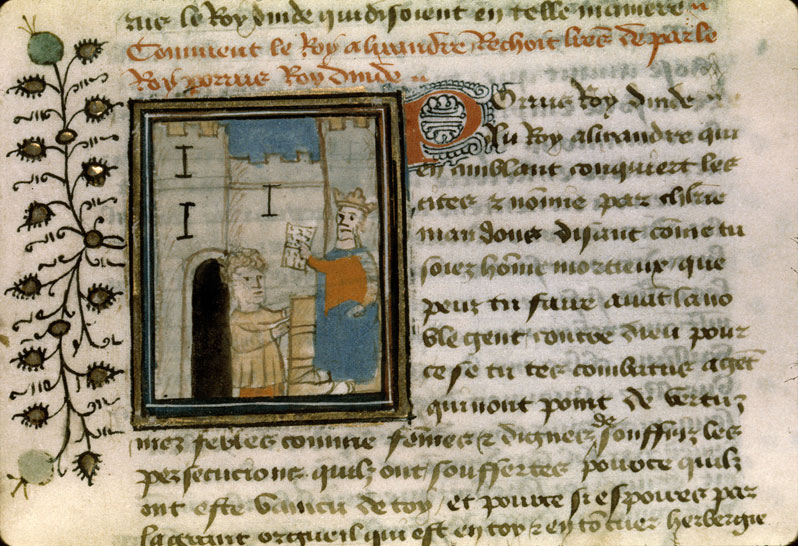 rus le Roy dinde qui disoient en telle maniere
Comment le Roy alixandre Rechoit lres de par le
Roy porrus Roy dinde
Porrus Roy dinde
Au Roy alixandre qui
en amblant conquiert les
cites & nomme par
mandons disant come tu
soiez home mortieux que
peuz tu faire avat la no
ble gent contre dieu pour
ce se tu tes combatus a get
qui nont point de vertuz
mez febles comme femes & dignez de souffrir les
persecucions quilz ont souffertes pource quilz
ont este vaincu de toy et pource si espoires par
la grant orgueil qui est en toy & en to cuer herbergie